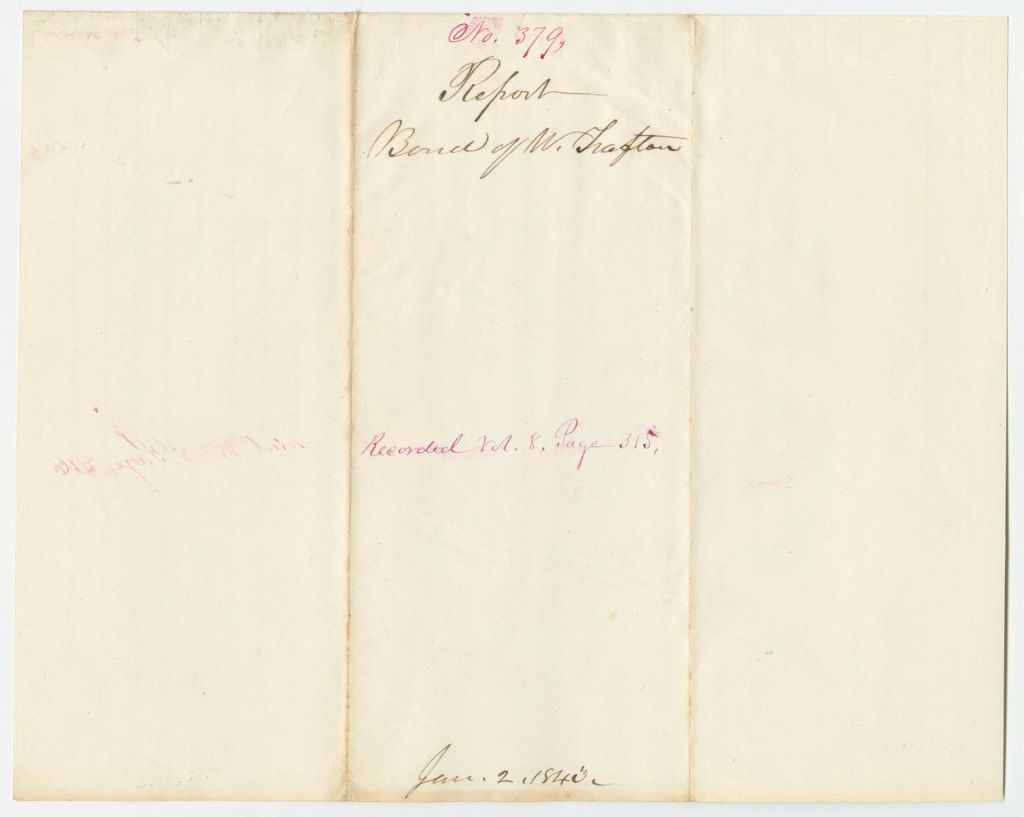 No. 379,
Report
Bond of W. Trafton
Recorded Vol. 8, Page 315,
Jan. 2, 1843.